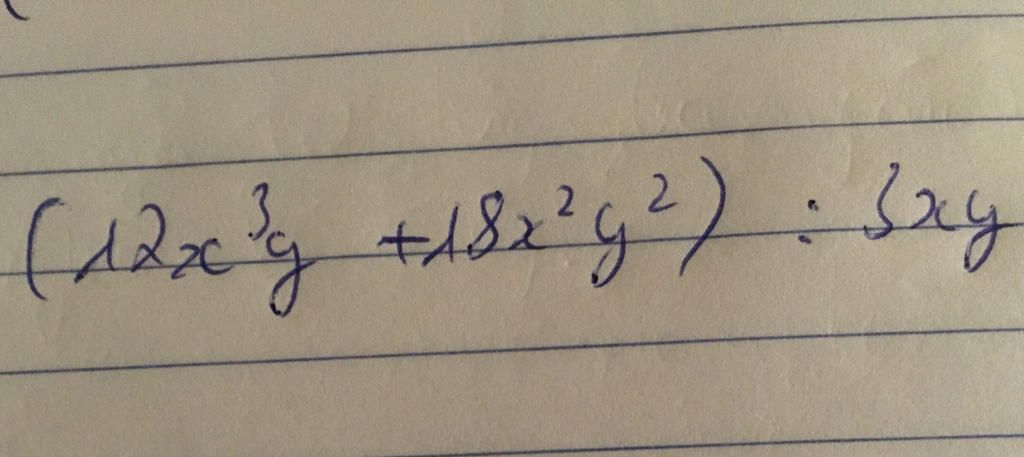 (12x³y +18x²y²) : 3xy